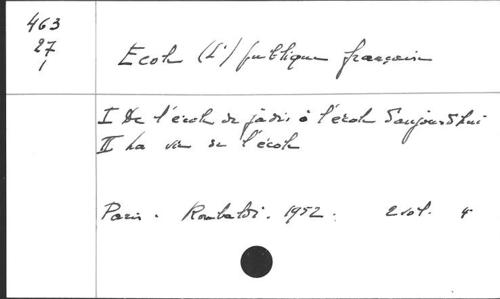 463
27
1
Ecole (L') publique française
I De l'école de jadis à l'école d'aujourd'hui
II La vie de l'école
Paris. Rombaldi. 1952. 2 vol. 4